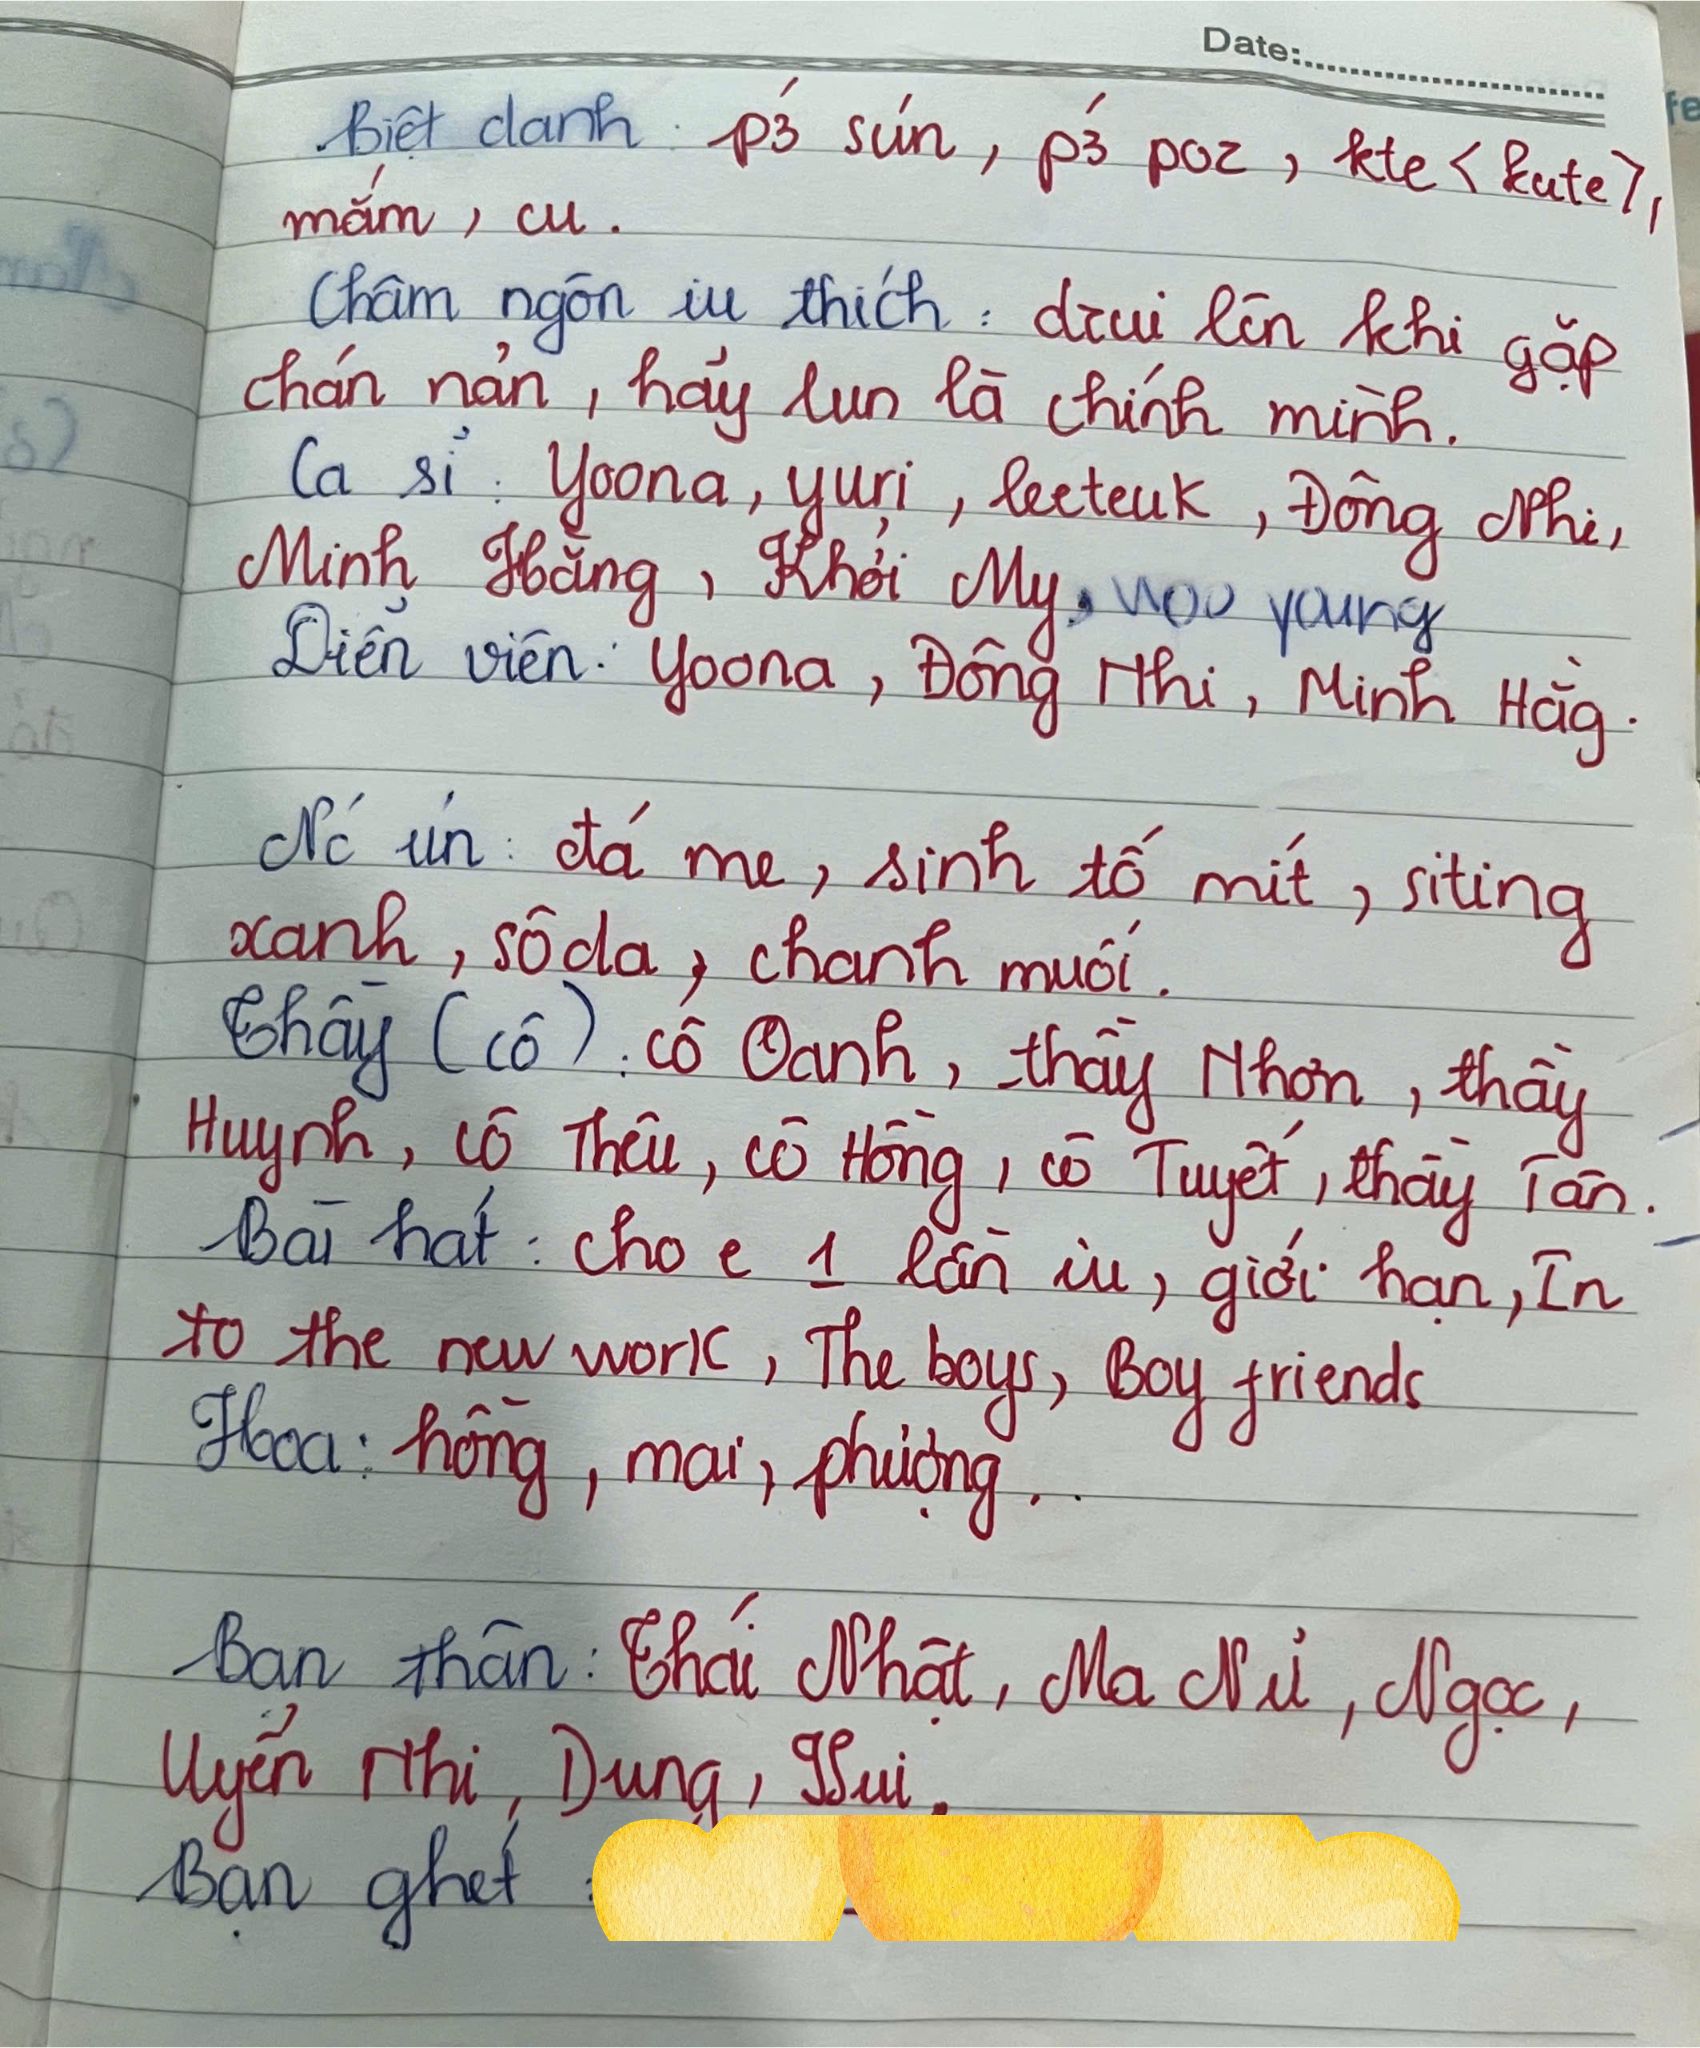 Date:
Biệt danh: p3́ sún, p3́ poz, kte < kute >,
mắm, cu.
Châm ngôn iu thích: dzui lên khi gặp
chán nản, hảy lun là chính mình.
Ca sỉ: Yoona, yuri, leeteuk, Đông Nhi,
Minh Hằng, Khởi My, woo young
Diển viên: Yoona, Đông Nhi, Minh Hằg.
Nć ún: đá me, sinh tố mít, siting
xanh, sôda, chanh muối.
Thầy (cô): cô Oanh, thầy Nhơn, thầy
Huynh, cô Thêu, cô Hồng, cô Tuyết, thầy Tân.
Bài hát: cho e 1 lần iu, giới hạn, In
to the new work, The boys, Boy friends
Hoa: hồng, mai, phượng..
Bạn thân: Thái Nhật, Ma Nử, Ngọc,
Uyển Nhi, Dung, Hui.
Bạn ghét: